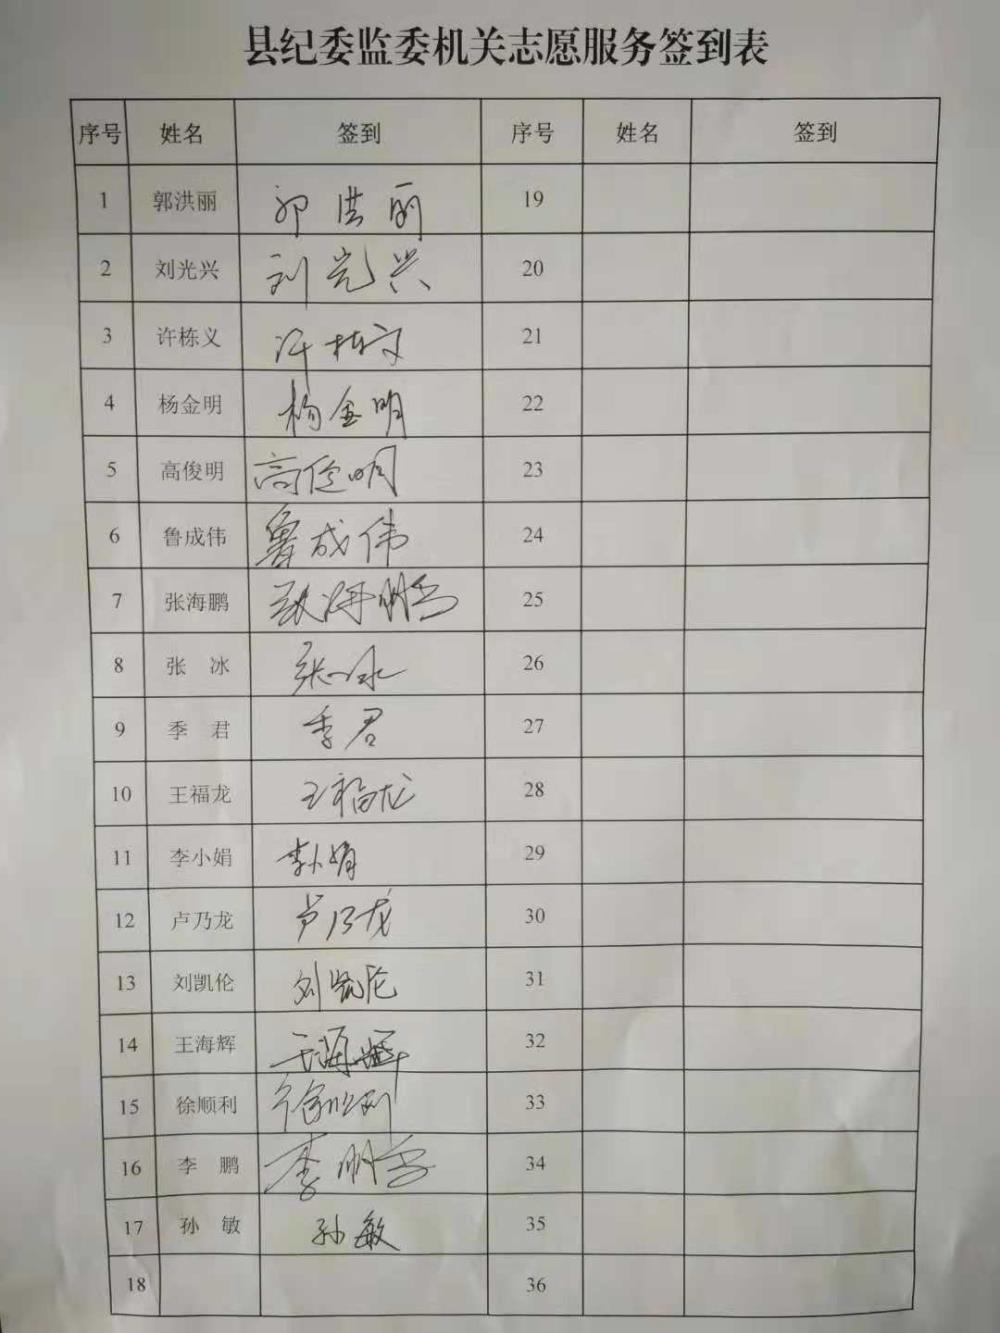 县纪委监委机关志愿服务签到表
序号 姓名 签到 序号 姓名 签到
1 郭洪丽 郭洪丽 19
2 刘光兴 刘光兴 20
3 许栋义 许栋义 21
4 杨金明 杨金明 22
5 高俊明 高俊明 23
6 鲁成伟 鲁成伟 24
7 张海鹏 张海鹏 25
8 张 冰 张冰 26
9 季 君 季君 27
10 王福龙 王福龙 28
11 李小娟 李小娟 29
12 卢乃龙 卢乃龙 30
13 刘凯伦 刘凯伦 31
14 王海辉 王海辉 32
15 徐顺利 徐顺利 33
16 李 鹏 李鹏 34
17 孙 敏 孙敏 35
18 36